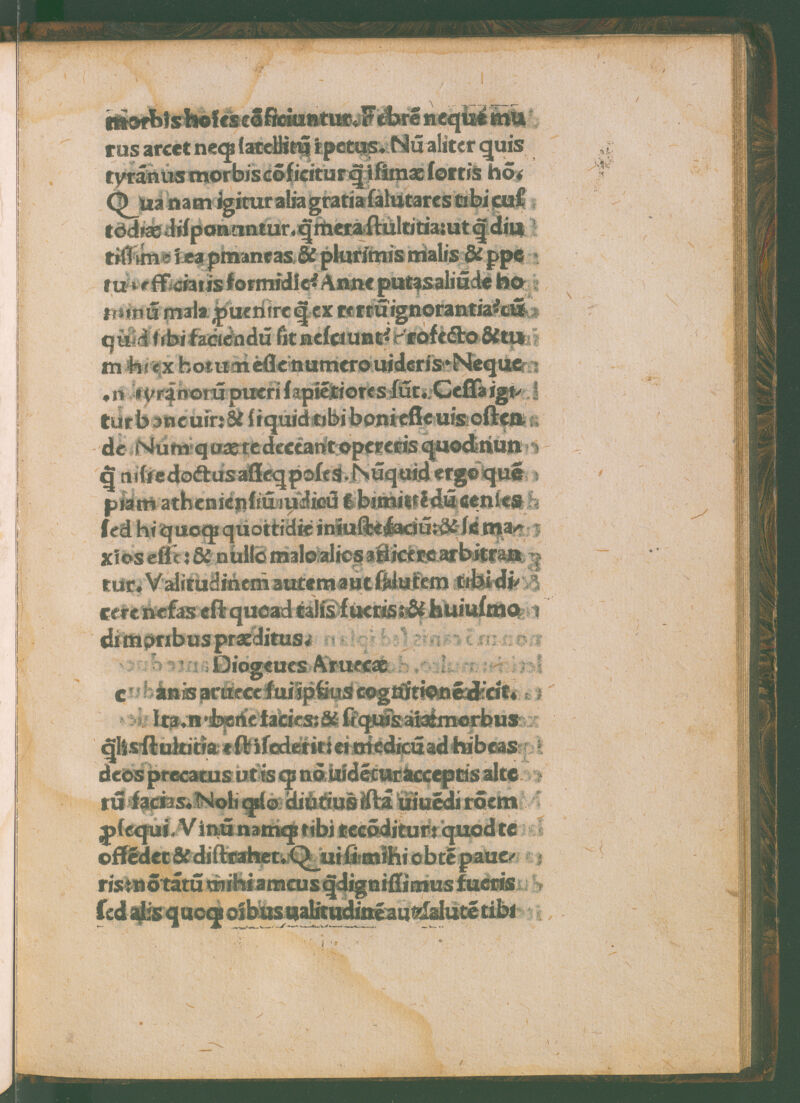 morbis hoſes cõficiuntur. Febrẽ neque mu
rus arcet neqꝫ ſatellitũ ĩpetus. Nũ aliter quis
tyrãnus morbis cõficitur q̃ iſimæ ſortis hõ.
Qua nam igitur alia gratia ſalutares tibi cuſ
tõdiæ diſponantur, q̃ mera ſtultitia: ut q̃ diu
tiſſime ea pmaneas, & plurimis malis & ppe
tuis efficiaris formidĩe? Anne putas aliũde ho
minũ mala ꝓuenire q̃ ex rerũ ignorantia? cũ
quid ſibi faciendũ ſit neſciunt? Profecto & tu
m hi ex horum eſſe numero uideris. Neque
.n. tyrãnorũ pueri ſapiẽtiores ſũt. Ceſſa igi
tur bone uir: & ſi quid tibi boni eſſe uis oſten
de. Num quæ te deceant opereris quod nun
q̃ niſi edoctus aſſeq poſes. Nũquid ergo quẽ
piam athenienſiũ iudicũ bimittẽdũ cenſes
ſed hi quoqꝫ quottidie iniuſte faciũ: & ſe ma
xĩos eſſe: & nullo malo alios afficere arbitran
tur. Valitudinem autem aut ſalutem tibi di
cere nefas eſt quoad talis fueris: & huiuſmo
di moribus præditus.
Diogeues Aruecæ
c anis aruece fui ipſius cognitionẽ dicit.
Ita .n. bene facies: & ſi quis aĩaĩ morbus
q̃lis ſtultitia eſt iſederit ei medicũ ad hibeas
deos precatus ut is qꝫ nõ uidẽtur acceptis alte
rũ facias. Noli qſo diutius iſtã uiuẽdi rõem
ꝓſequi. Vinũ namqꝫ tibi recõditur: quod te
offẽdet & diſtrahet. Qui ſi mihi obtẽpaue
ris: nõ tãtũ mihi amcus q̃ digniſſimus fueris
ſed alis quoqꝫ oĩbus ualitudinẽ aut ſalutẽ tibi